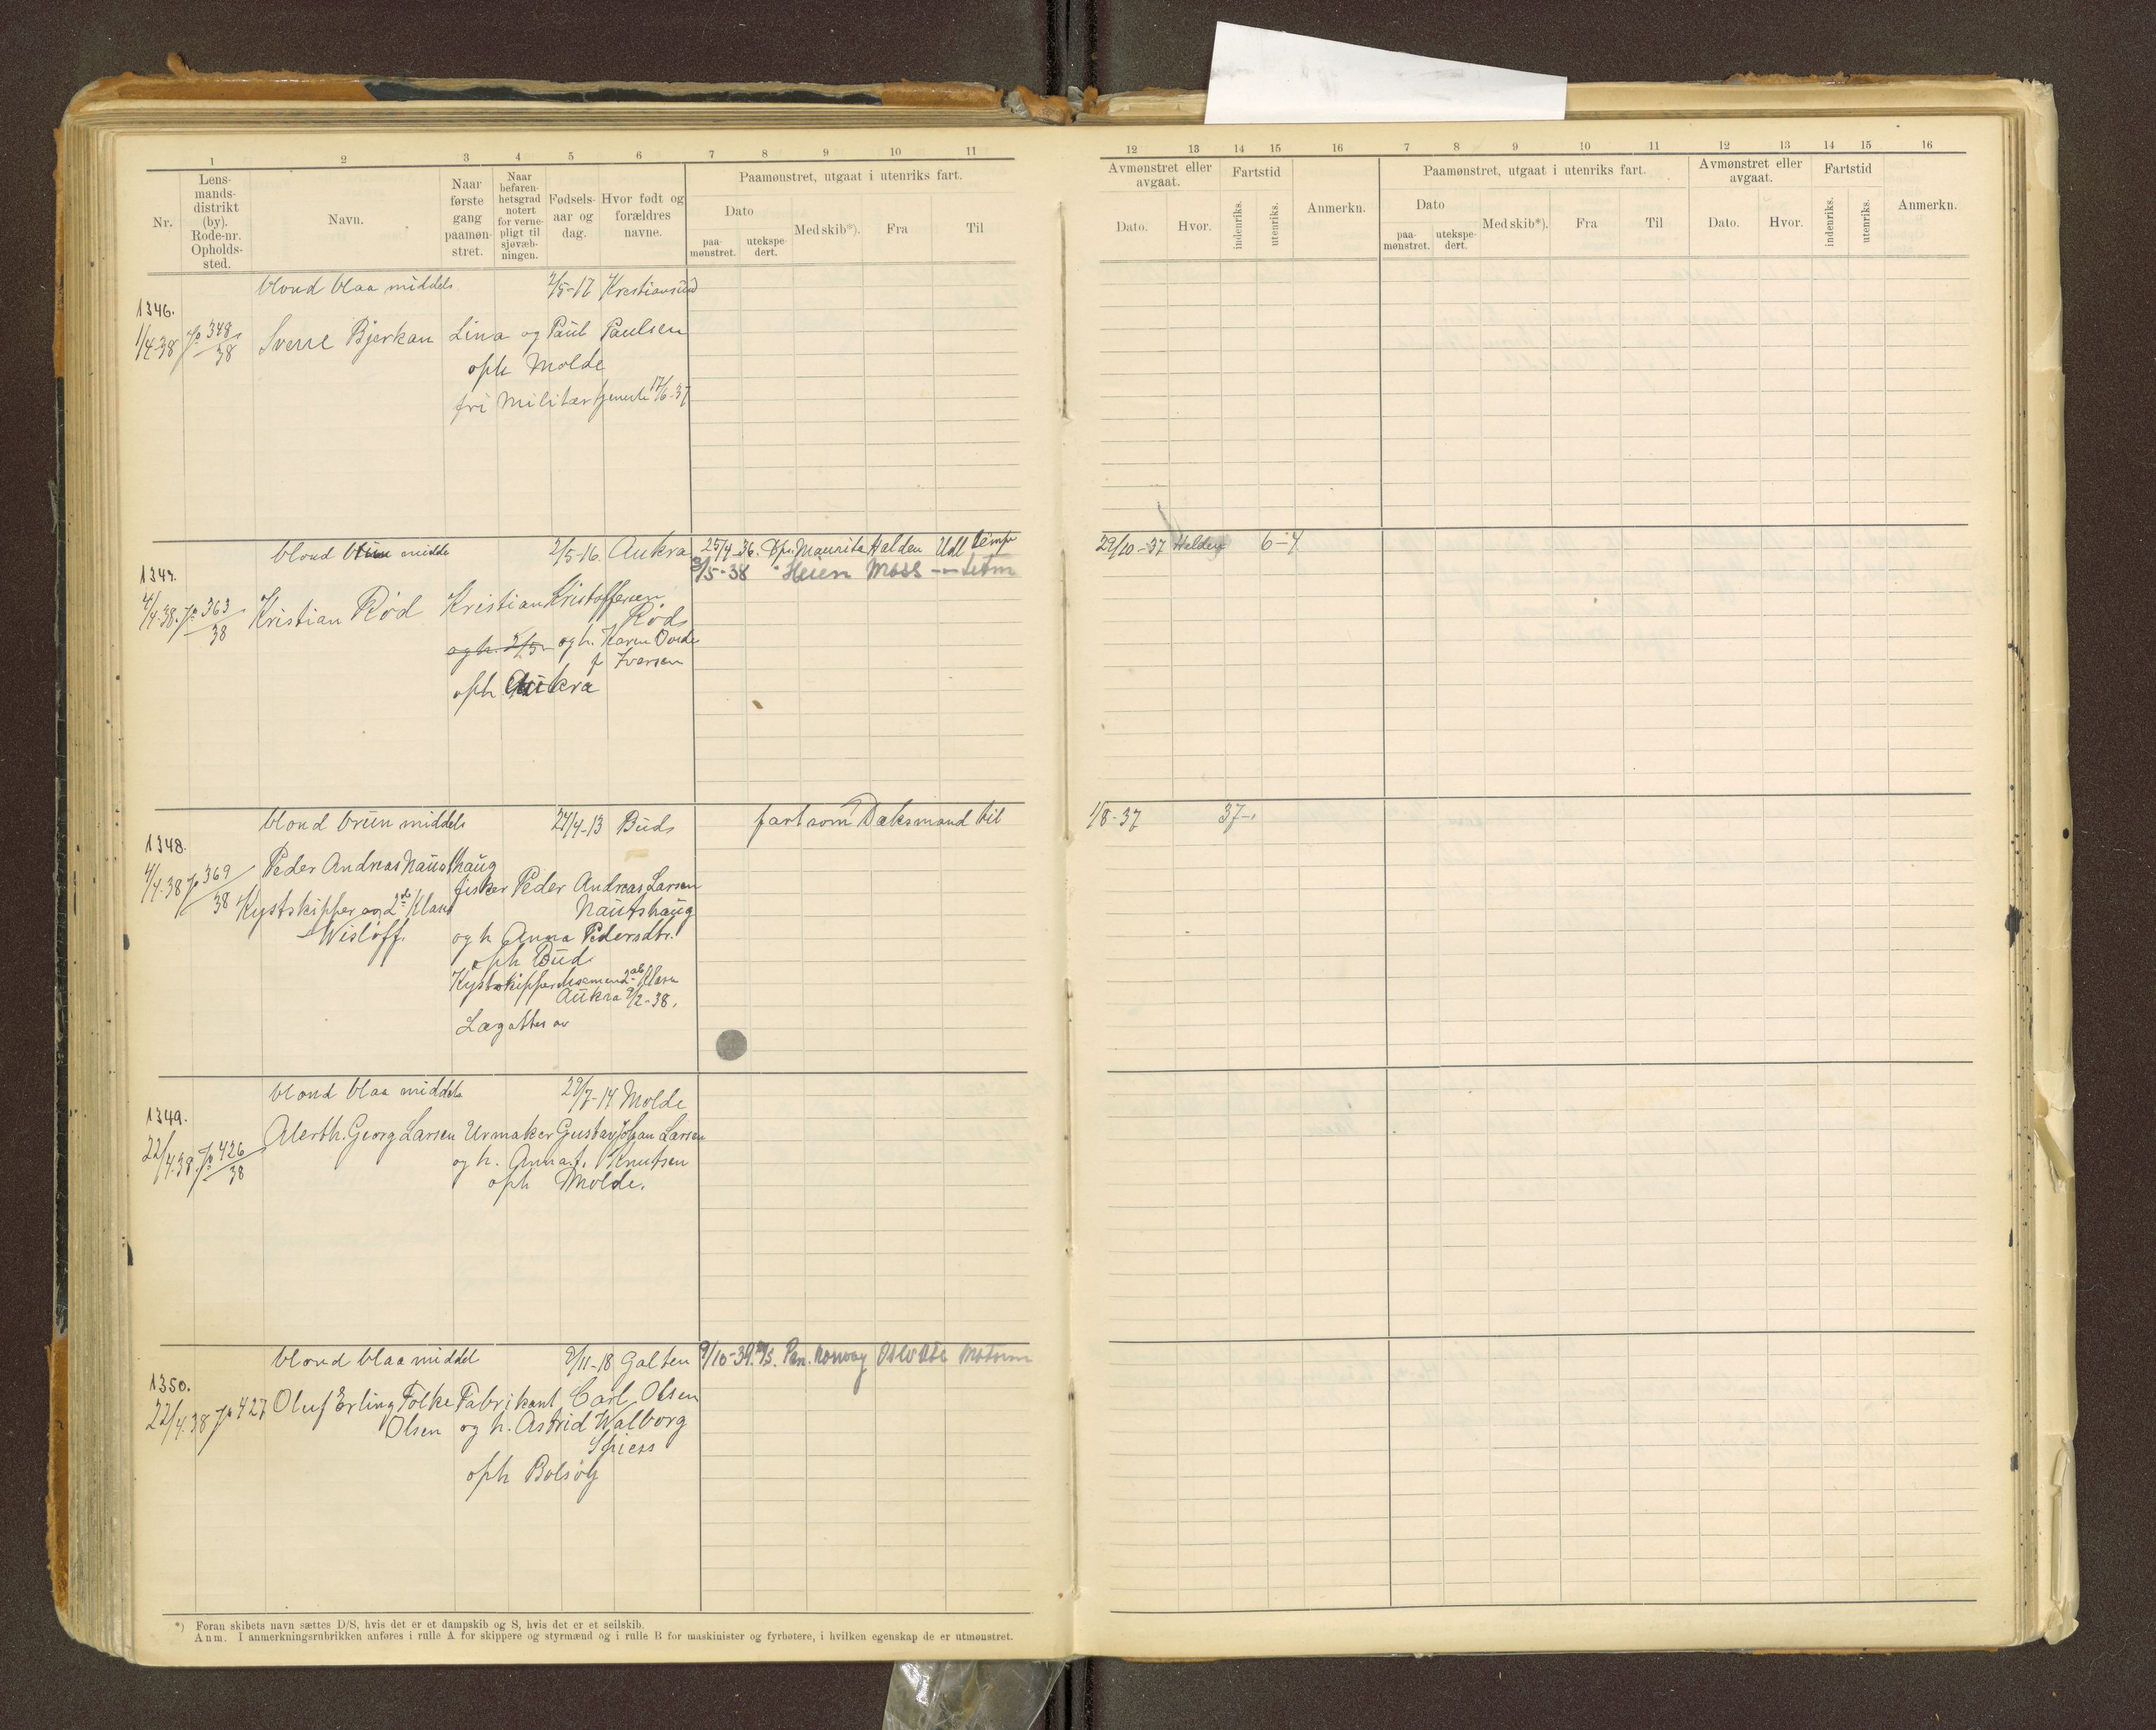 1 2 3 4 5 6 7 8 9 10 11
Nr.
Lens-
mands-
distrikt
(by).
Rode-nr.
Opholds-
sted.
Navn.
Naar
første
gang
paamøn-
stret.
Naar
befaren-
hetsgrad
notert
for verne-
pligt til
sjøvæb-
ningen.
Fødsels-
aar og
dag.
Hvor født og
forældres
navne.
Paamønstret, utgaat i utenriks fart.
Dato
paa-
mønstret.
utekspe-
dert.
Med skib*).
Fra
Til
12 13 14 15 16 7 8 9 10 11 12 13 14 15 16
Avmønstret eller
avgaat.
Dato.
Hvor.
Fartstid
indenriks.
utenriks.
Anmerkn.
Paamønstret, utgaat i utenriks fart.
Dato
paa-
mønstret.
utekspe-
dert.
Med skib*).
Fra
Til
Avmønstret eller
avgaat.
Dato.
Hvor.
Fartstid
indenriks.
utenriks.
Anmerkn.
blond blaa middels 2/5-17 Kristiansund
1346.
1/4-38 Jo 348/38 Sverre Bjerkan Lina og Paul Paulsen
oph Molde
fri Militærtjeneste 17/6-37
blond brun midde 2/5-16 Aukra 25/4-36. Maurita Halden Udl 29/10-37 Halden 6-4
3/5-38 " Heien Moss
1347.
4/4-38. Jo 363/38 Kristian Rød Kristian Kristoffersen
Røds
og h. 2/5 og h. Karen Ovide
f Iversen
oph Aukra
blond brun middels 27/4-13 Buds fart som Dæksmand til 1/8-37 37-
1348.
4/4-38 Jo 369/38 Peder Andreas Nausthaug
fisker Peder Andreas Larsen
Kystskipper og 2de Klans
Nautshaug
Wisløff.
og h Anna Pedersdtr.
oph Bud
Aukra 9/2-38.
av
blond blaa middels 29/7-14 Molde
1349.
22/4-38. Jo 426/38 Alerth. Georg Larsen Urmaker Gustav Johan Larsen
og h. Anna f. Knutsen
oph Molde.
blond blaa middel 9/11-18 Galten 9/10-39. M/S. Pan. Norway Oslo
1350.
22/4-38 Jo 427 Oluf Erling Folke Fabrikant Carl Olsen
Olsen og h. Astrid Walborg
Spiess
oph Bolsøy
*) Foran skibets navn sættes D/S, hvis det er et dampskib og S, hvis det er et seilskib.
Anm. I anmerkningsrubrikken anføres i rulle A for skippere og styrmænd og i rulle B for maskinister og fyrbøtere, i hvilken egenskap de er utmønstret.